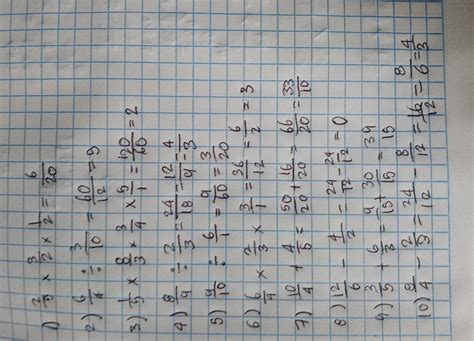 1) 2/5 x 3/2 x 1/2 = 6/20
2) 6/4 ÷ 3/10 = 60/12 = 5
3) 1/5 x 8/3 x 3/4 x 5/1 = 120/60 = 2
4) 8/9 ÷ 2/3 = 24/18 = 12/9 = 4/3
5) 9/10 ÷ 6/1 = 9/60 = 3/20
6) 6/4 x 2/3 x 3/1 = 36/12 = 6/2 = 3
7) 10/4 + 4/5 = 50/20 + 16/20 = 66/20 = 33/10
8) 12/6 - 4/2 = 24/12 - 24/12 = 0
9) 3/5 + 6/3 = 9/15 + 30/15 = 39/15
10) 8/4 - 2/3 = 24/12 - 8/12 = 16/12 = 8/6 = 4/3